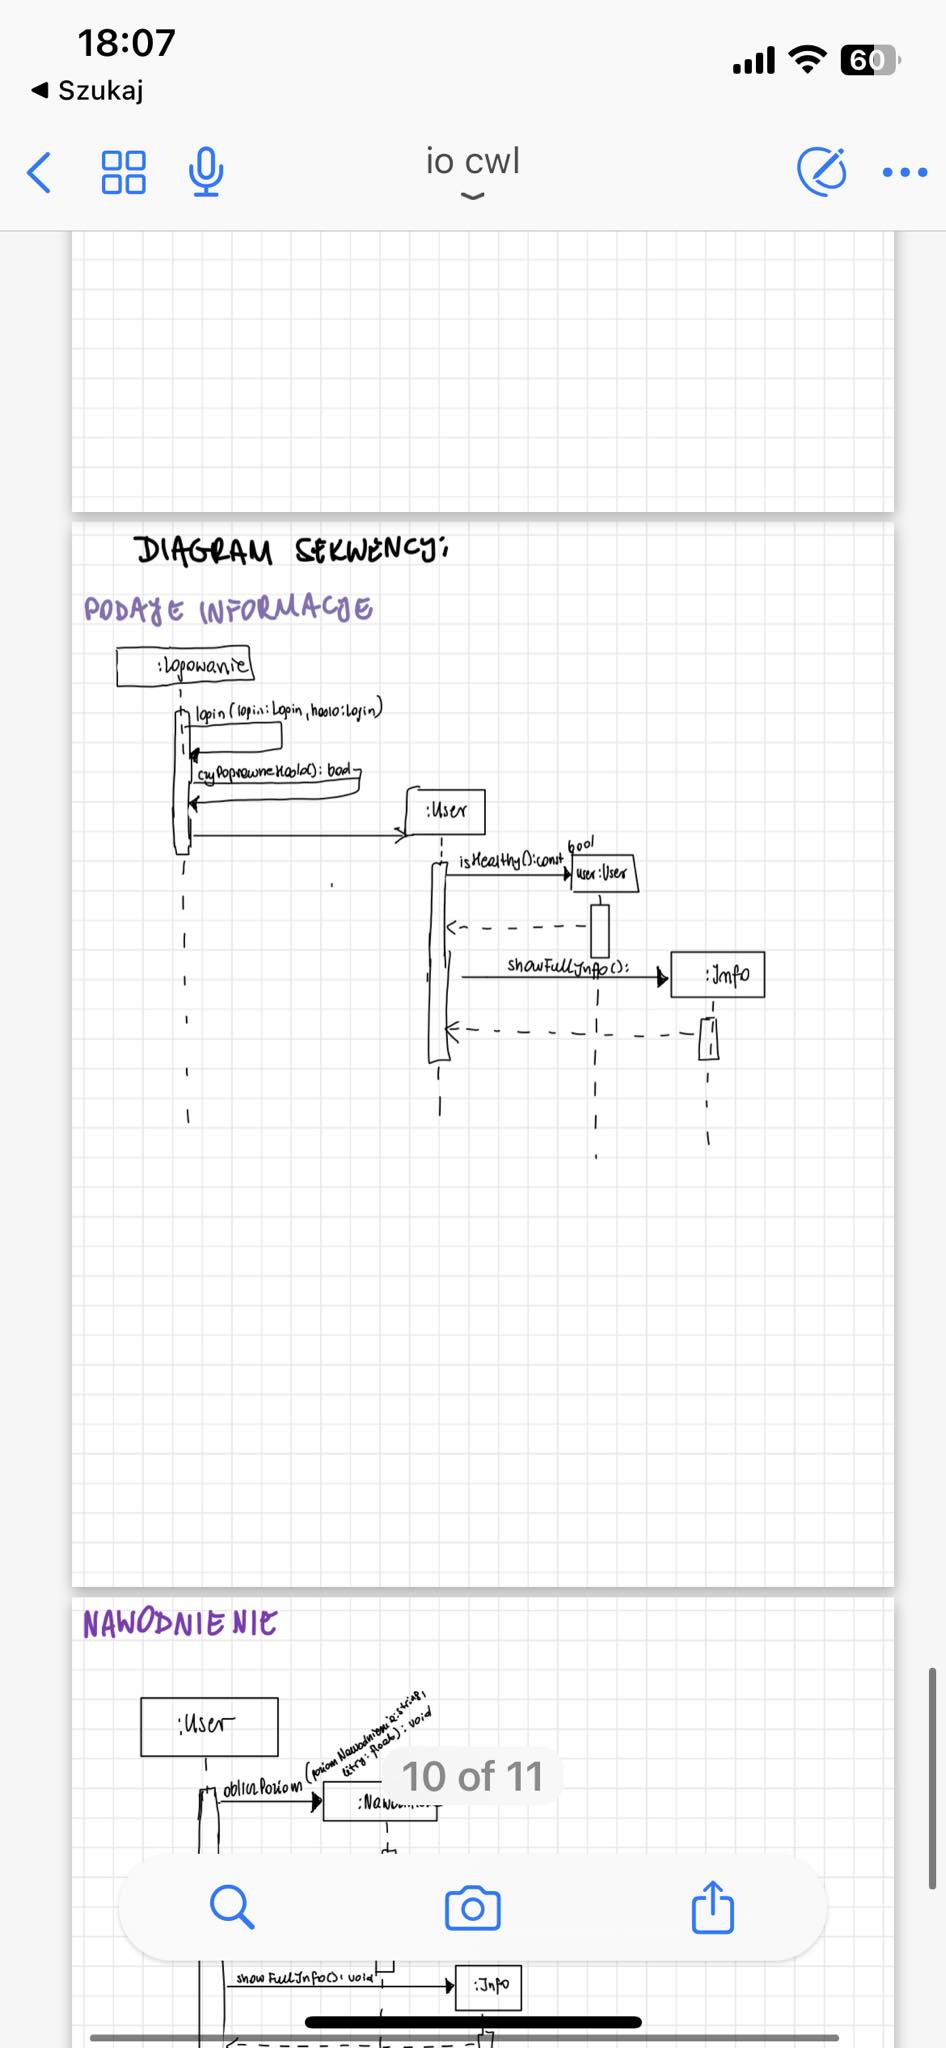 18:07
60
Szukaj
io cwl
DIAGRAM SEKWENCJI
PODAJE INFORMACJE
:Logowanie
login (login: Login, haslo: Login)
czyPoprawneHaslo(): bool
:User
isHealthy(): const bool
user: User
showFullInfo():
:Info
NAWODNIENIE
:User
obliczPoziom (poziomNawodnienia: string,
litry: float): void
10 of 11
showFullInfo(): void
:Info